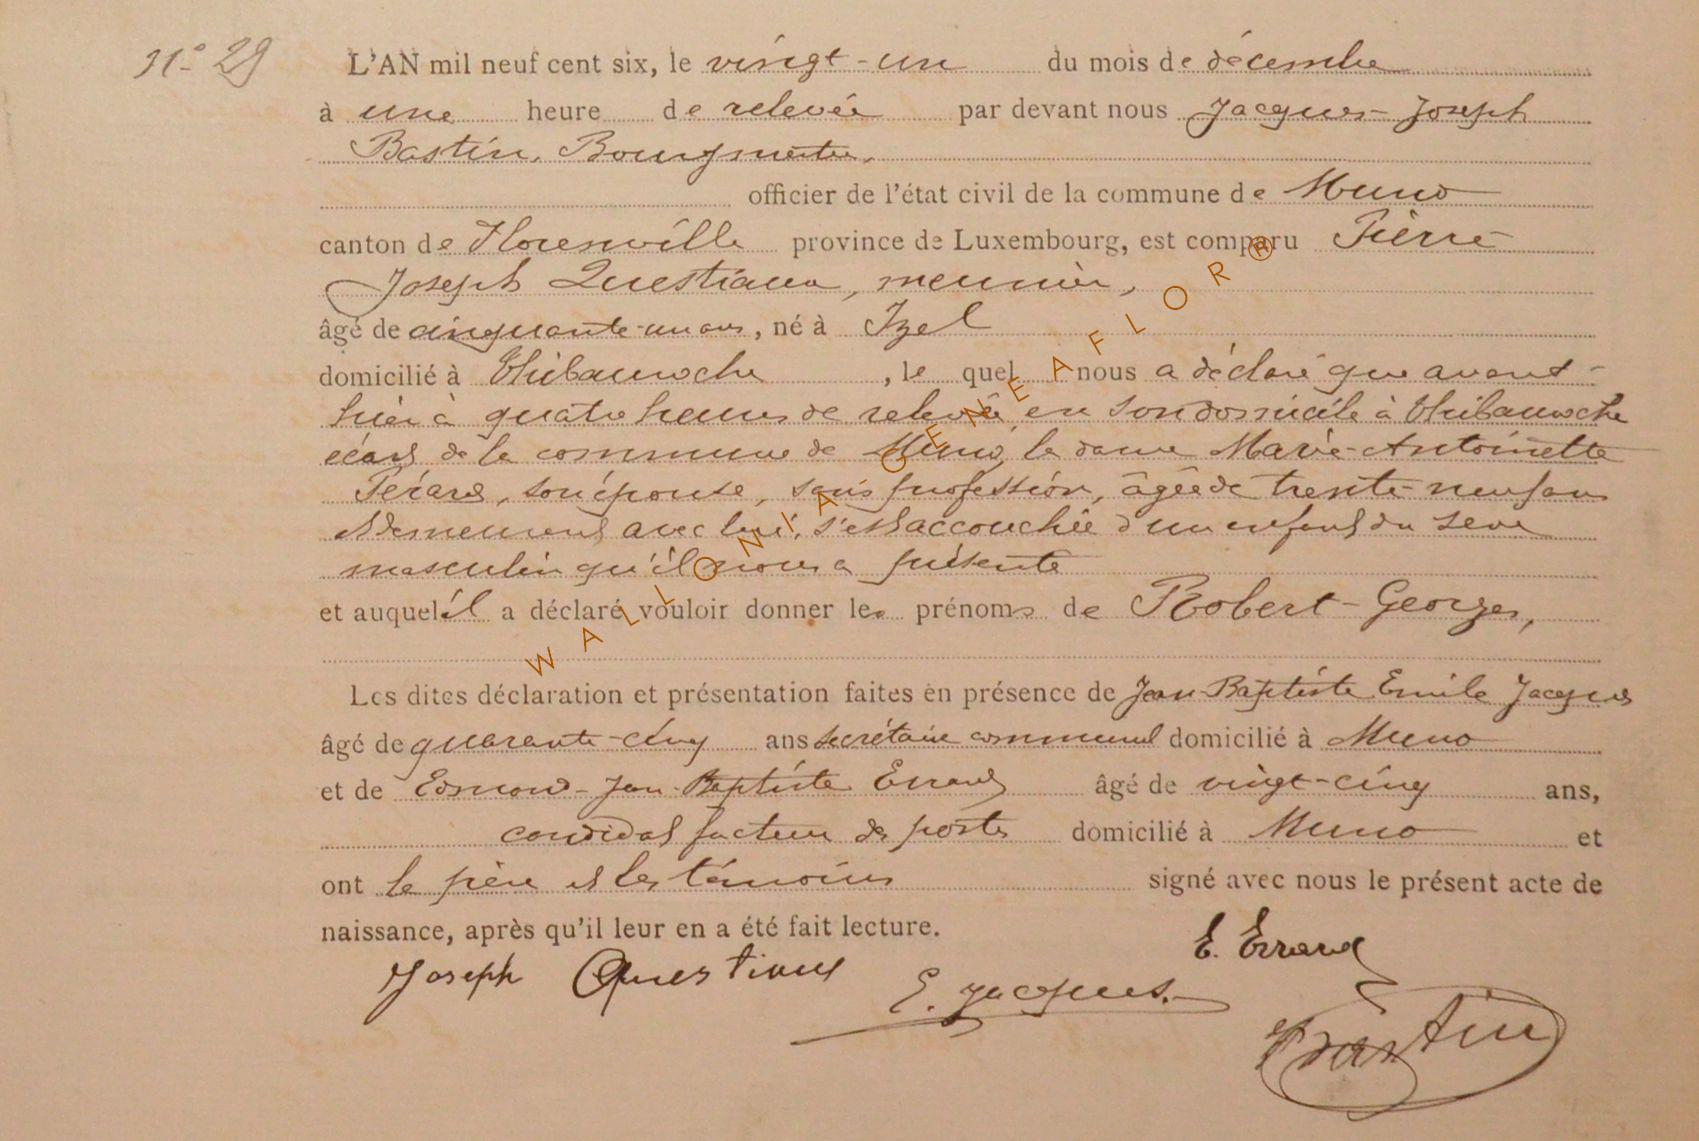 n° 29
L'AN mil neuf cent six, le vingt-un du mois de décembre
à une heure de relevée par devant nous Jacques-Joseph
Bastin, Bourgmestre,
officier de l'état civil de la commune de Muno
canton de Florenville province de Luxembourg, est comparu Pierre
Joseph Questiaux, meunier,
âgé de cinquante-un ans, né à Izel
domicilié à Thibauroche, le quel nous a déclaré que avant-
hier à quatre heures de relevée, en son domicile à Thibauroche
écart de la commune de Muno, la dame Marie-Antoinette
son épouse, sans profession, âgée de trente-neuf ans
et demeurant avec lui, s'est accouchée d'un enfant du sexe
masculin qu'il nous a présenté
et auquel il a déclaré vouloir donner les prénoms de Robert-Georges,
Les dites déclaration et présentation faites en présence de Jean-Baptiste Emile Jacques
âgé de quarante-cinq ans secrétaire communal domicilié à Muno
et de Edmond-Jean-Baptiste Errard âgé de vingt-cinq ans,
candidat facteur des postes domicilié à Muno et
ont le père et les témoins signé avec nous le présent acte de
naissance, après qu'il leur en a été fait lecture.
E. Errard
Joseph Questiaux
E. Jacques.
Bastin
WALLONIA GENEAFLOR®